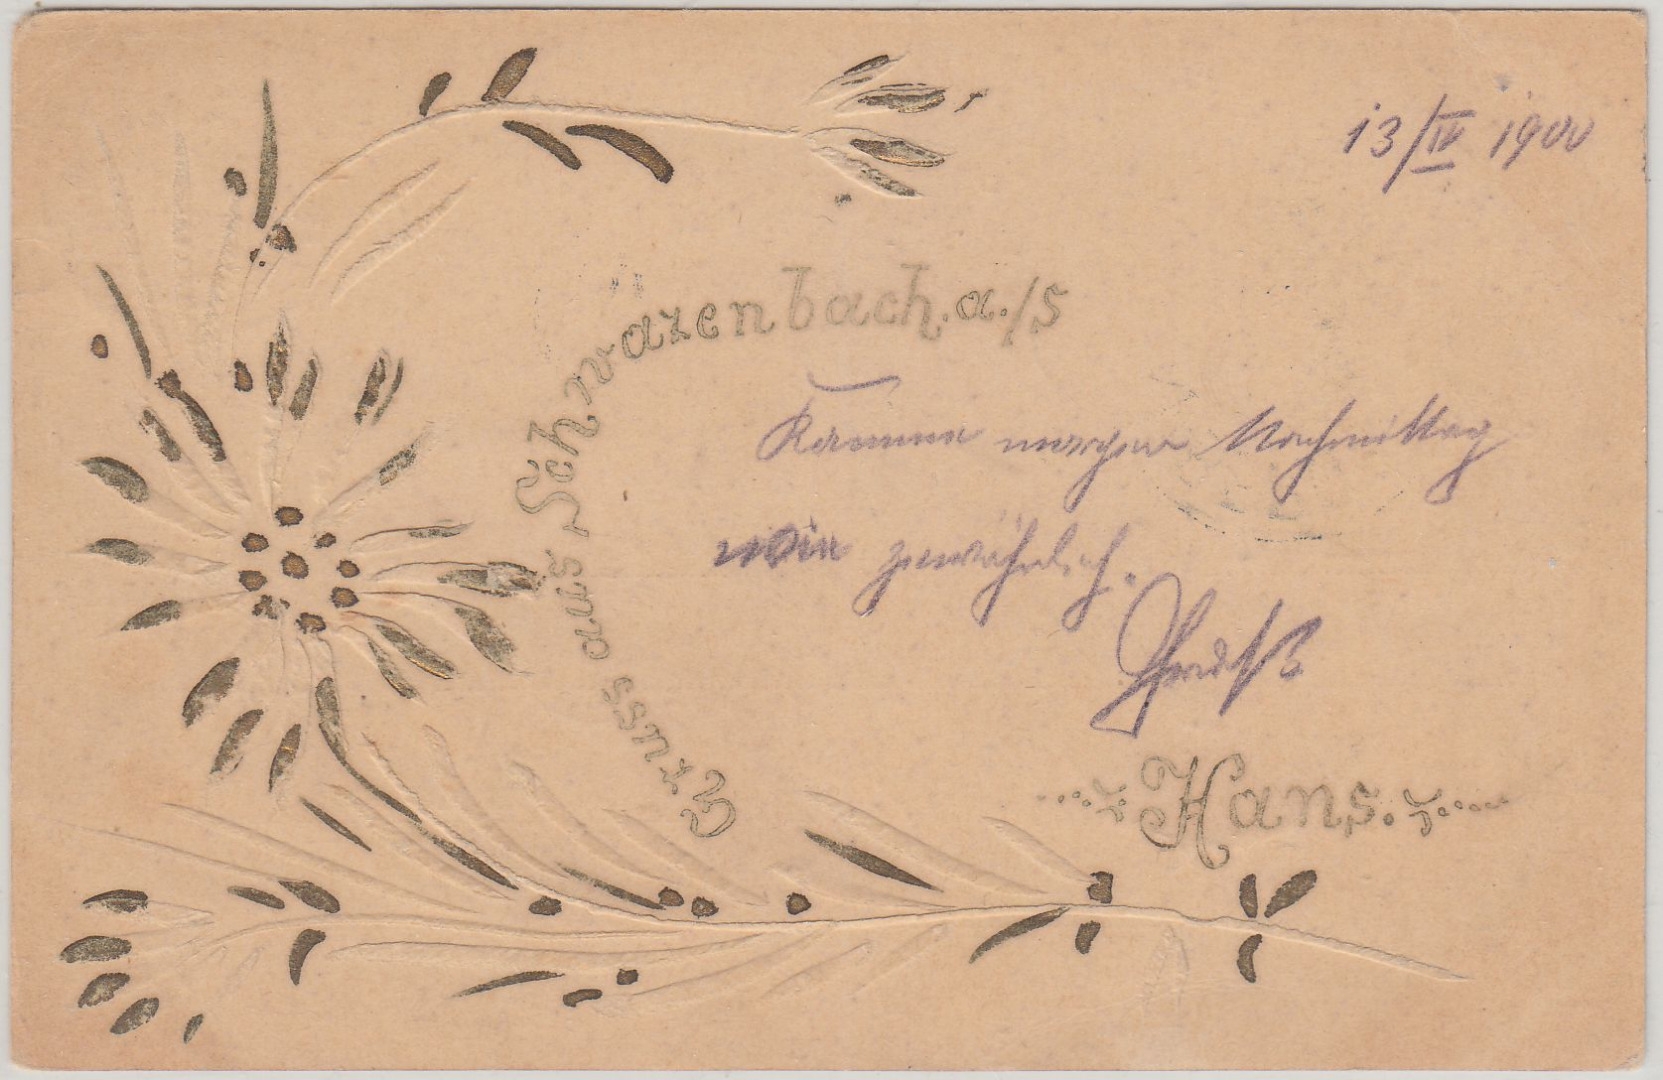 13/IV 1900
Gruss aus Schwarzenbach. a./S
Komme morgen Nachmittag
wie gewöhnlich.
Gruß
Hans.